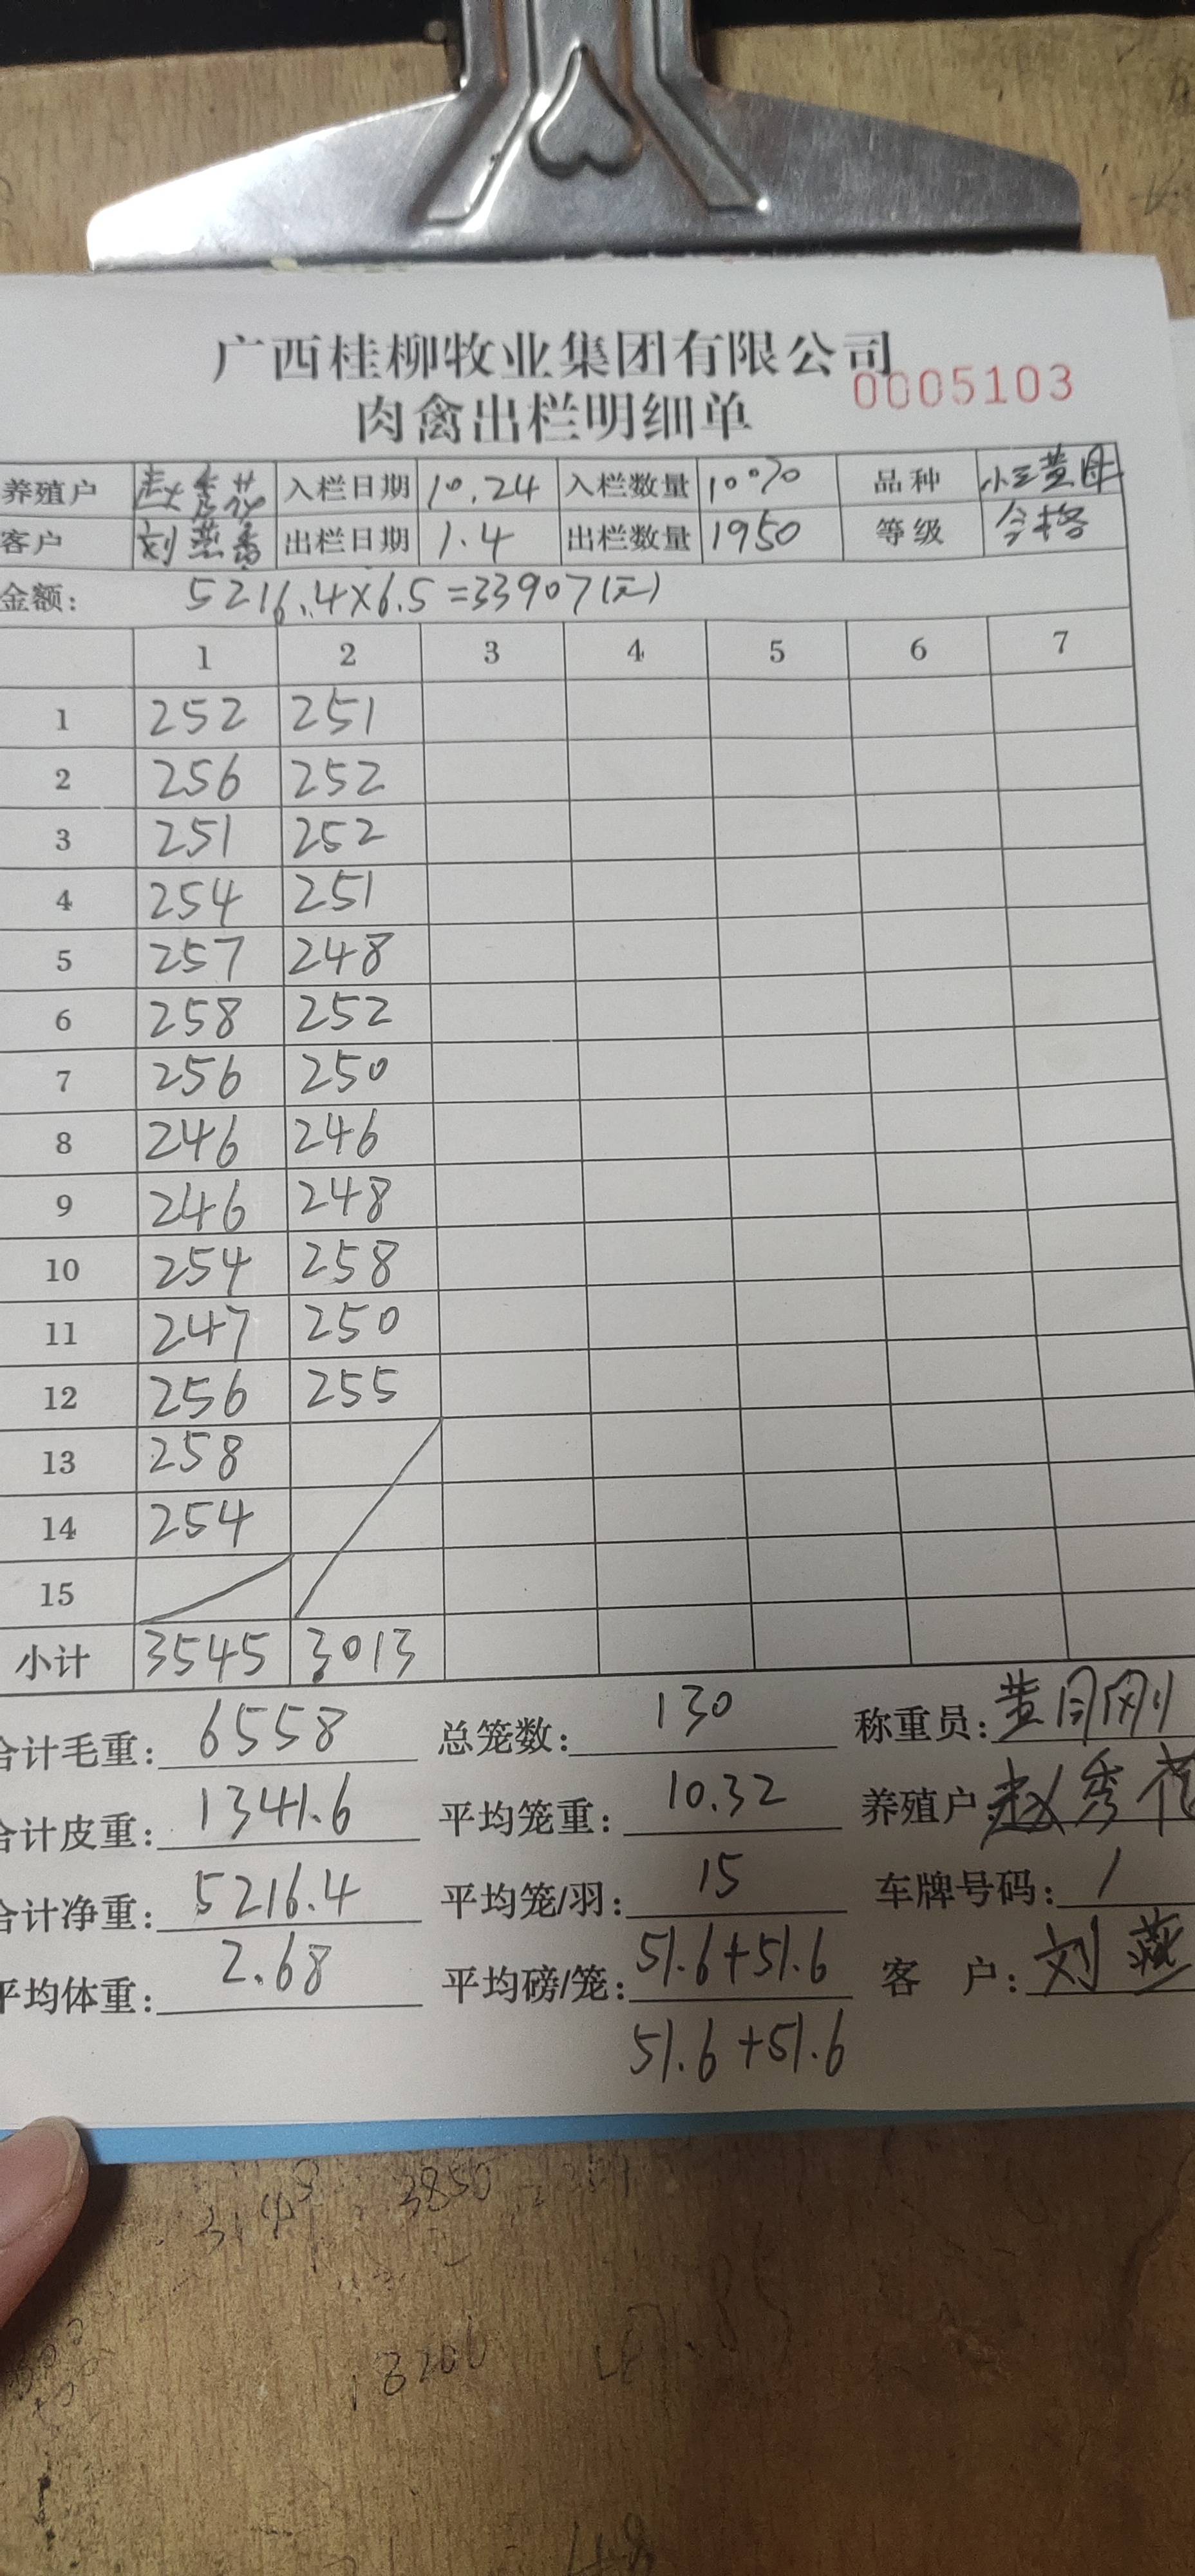 广西桂柳牧业集团有限公司
0005103
肉禽出栏明细单
养殖户 赵秀花 入栏日期 10.24 入栏数量 10070 品种 小三黄母
客户 刘燕 出栏日期 1.4 出栏数量 1950 等级 合格
金额: 5216.4×6.5=33907(元)
1 2 3 4 5 6 7
1 252 251
2 256 252
3 251 252
4 254 251
5 257 248
6 258 252
7 256 250
8 246 246
9 246 248
10 254 258
11 247 250
12 256 255
13 258
14 254
15
小计 3545 3013
合计毛重: 6558 总笼数: 130 称重员: 黄月刚
合计皮重: 1341.6 平均笼重: 10.32 养殖户 赵秀花
合计净重: 5216.4 平均笼/羽: 15 车牌号码: 1
平均体重: 2.68 平均磅/笼: 51.6+51.6 客 户: 刘燕
51.6+51.6
3850